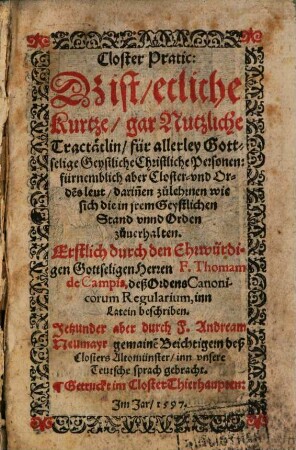 Closter Pratic:
Dz ist/ etliche
Kurtze/ gar Nutzliche
Tractätlin/ für allerley Gott-
selige Geystliche Christliche Personen:
fürnemblich aber Closter- vnd Or-
dēs leut/ dariñen zůlehrnen wie
sich die in jrem Geystlichen
Stand vnnd Orden
zůuerhalten.
Erstlich durch den Ehrwürdi-
gen Gottseligen Herren F. Thomam
de Campis, deß Ordens Canoni-
corum Regularium, inn
Latein beschriben.
Jetzunder aber durch F. Andream
Neumayr gemainē Beichtigern deß
Closters Altomünster/ inn vnsere
Teutsche sprach gebracht.
Getruckt im Closter Thierhaupten:
Im Jar/ 1597.